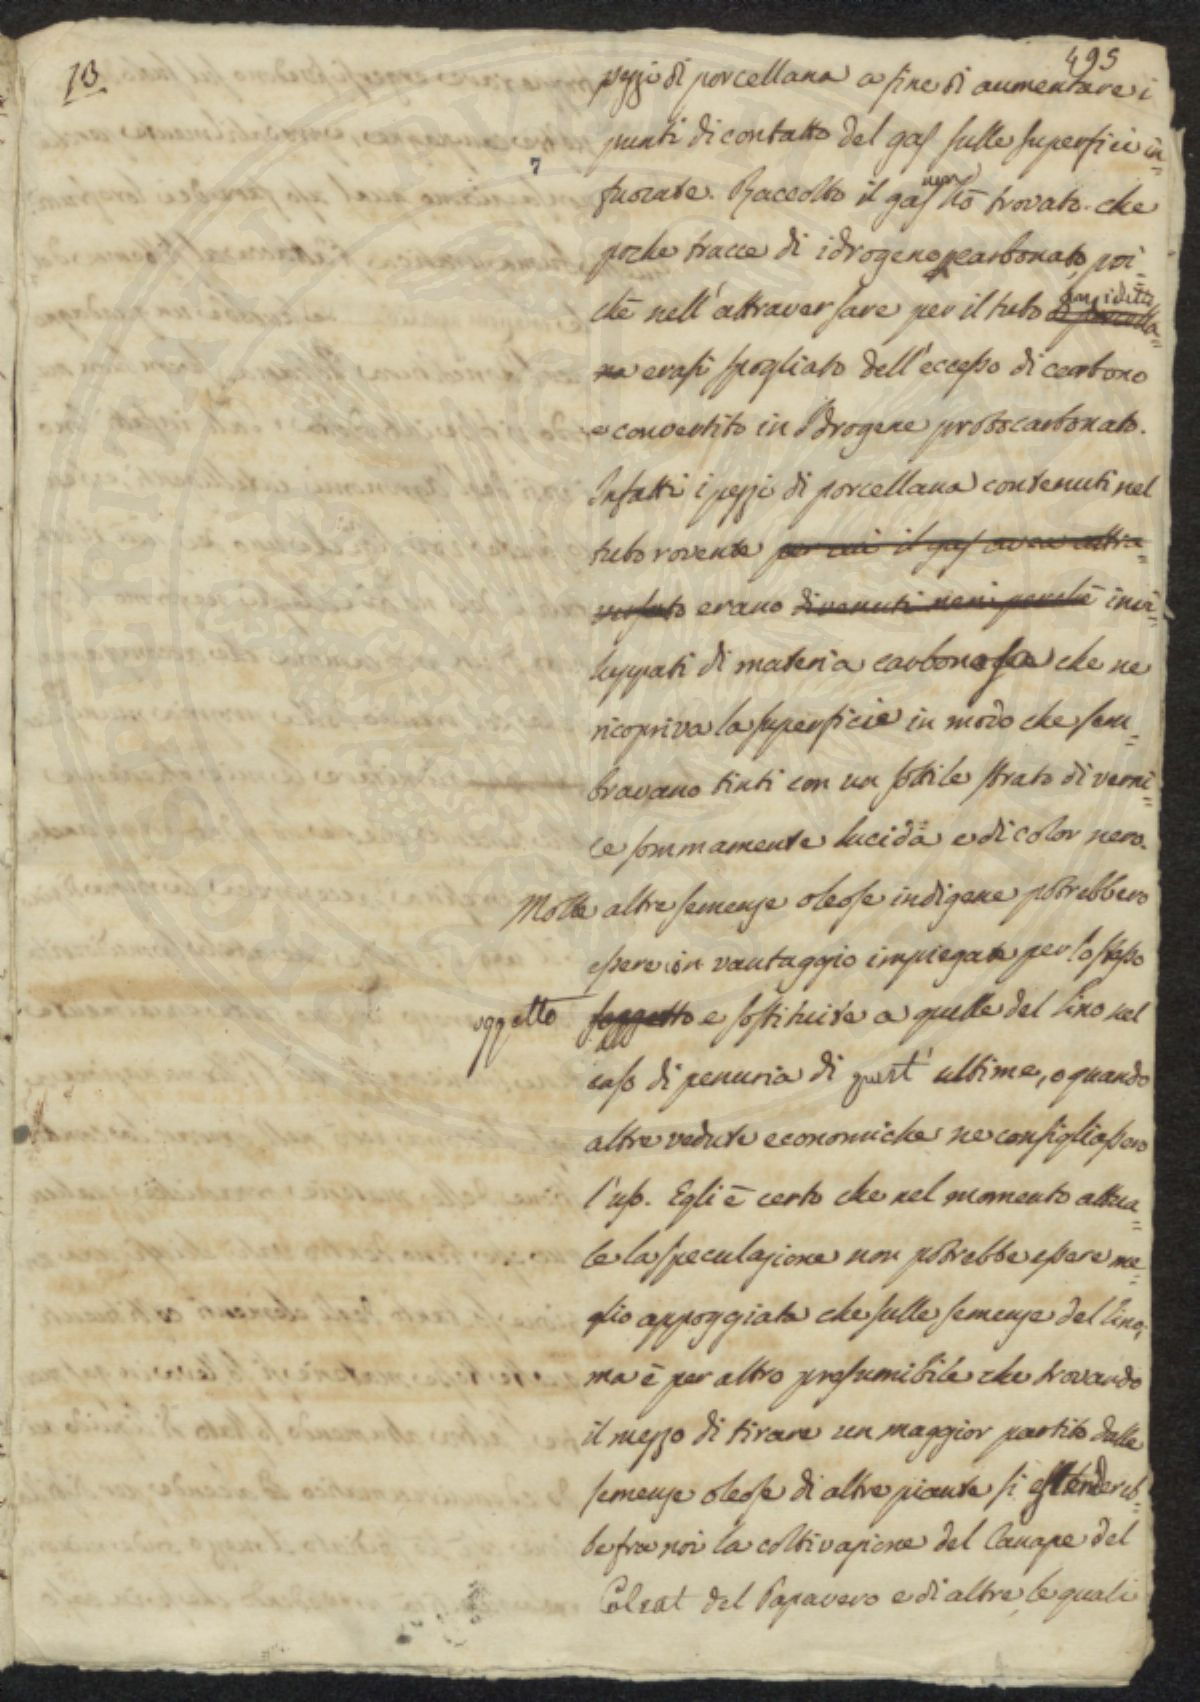 13. 495
pezzi di porcellana a fine di aumentare i
punti di contatto del gas sulle superficie in=
7
fuocate. Raccolto il gas non hō trovato che
poche tracce di idrogeno percarbonato, poi=
chē nell'attraversare per il tubo di porcella= anzidetto
na erasi spogliato dell'eccesso di carbono
e convertito in Idrogene protocarbonato.
Infatti i pezzi di porcellana contenuti nel
tubo rovente per cui il gas avea attra=
versato erano divenuti neri perchē invi=
luppati di materia carbonosa che ne
ricopriva la superficie in modo che sem=
bravano tinti con un sottile strato di verni=
ce sommamente lucida e di color nero.
Molte altre semenze oleose indigene potrebbero
essere con vantaggio impiegate per lo stesso
oggetto soggetto e sostituite a quelle del Lino nel
caso di penuria di quest'ultime, o quando
altre vedute economiche ne consigliassero
l'uso. Egli ē certo che nel momento attua=
le la speculazione non potrebbe essere me=
glio appoggiata che sulle semenze del Lino,
ma ē per altro presumibile che trovando
il mezzo di tirare un maggior partito dalle
semenze oleose di altre piante si estendereb=
be fra noi la coltivazione del Canape del
Colzat del Papavero e di altre le quali